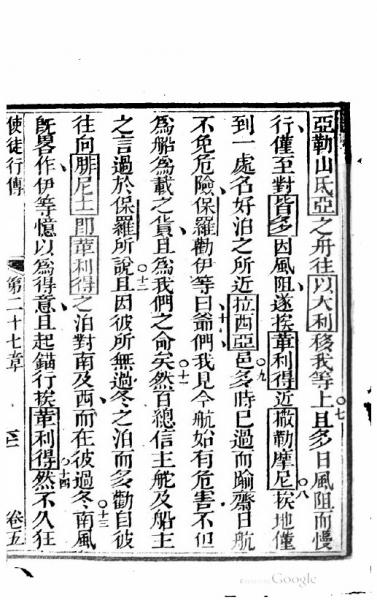 亞勒山氏亞之舟往以大利移我等上且多日風阻而慢
行僅至對皆多因風阻遂挨革利得近撒勒摩尼挨地僅
到一處名好泊之所近拉西亞邑多時已過而踰齋日航
不免危險保羅勸伊等曰爺們我見今航始有危害不但
為船為載之貨且為我們之命矣然百總信主舵及船主
之言過於保羅所說且因彼所無過冬之泊而多勸自彼
往向腓尼士即革利得之泊對南及西而在彼過冬南風
旣畧作伊等憶以為得意且起錨行挨革利得然不久狂
使徒行傳 第二十七章 卷五
○七
○八
○九
○十
○十一
○十二
○十三
○十四
Google